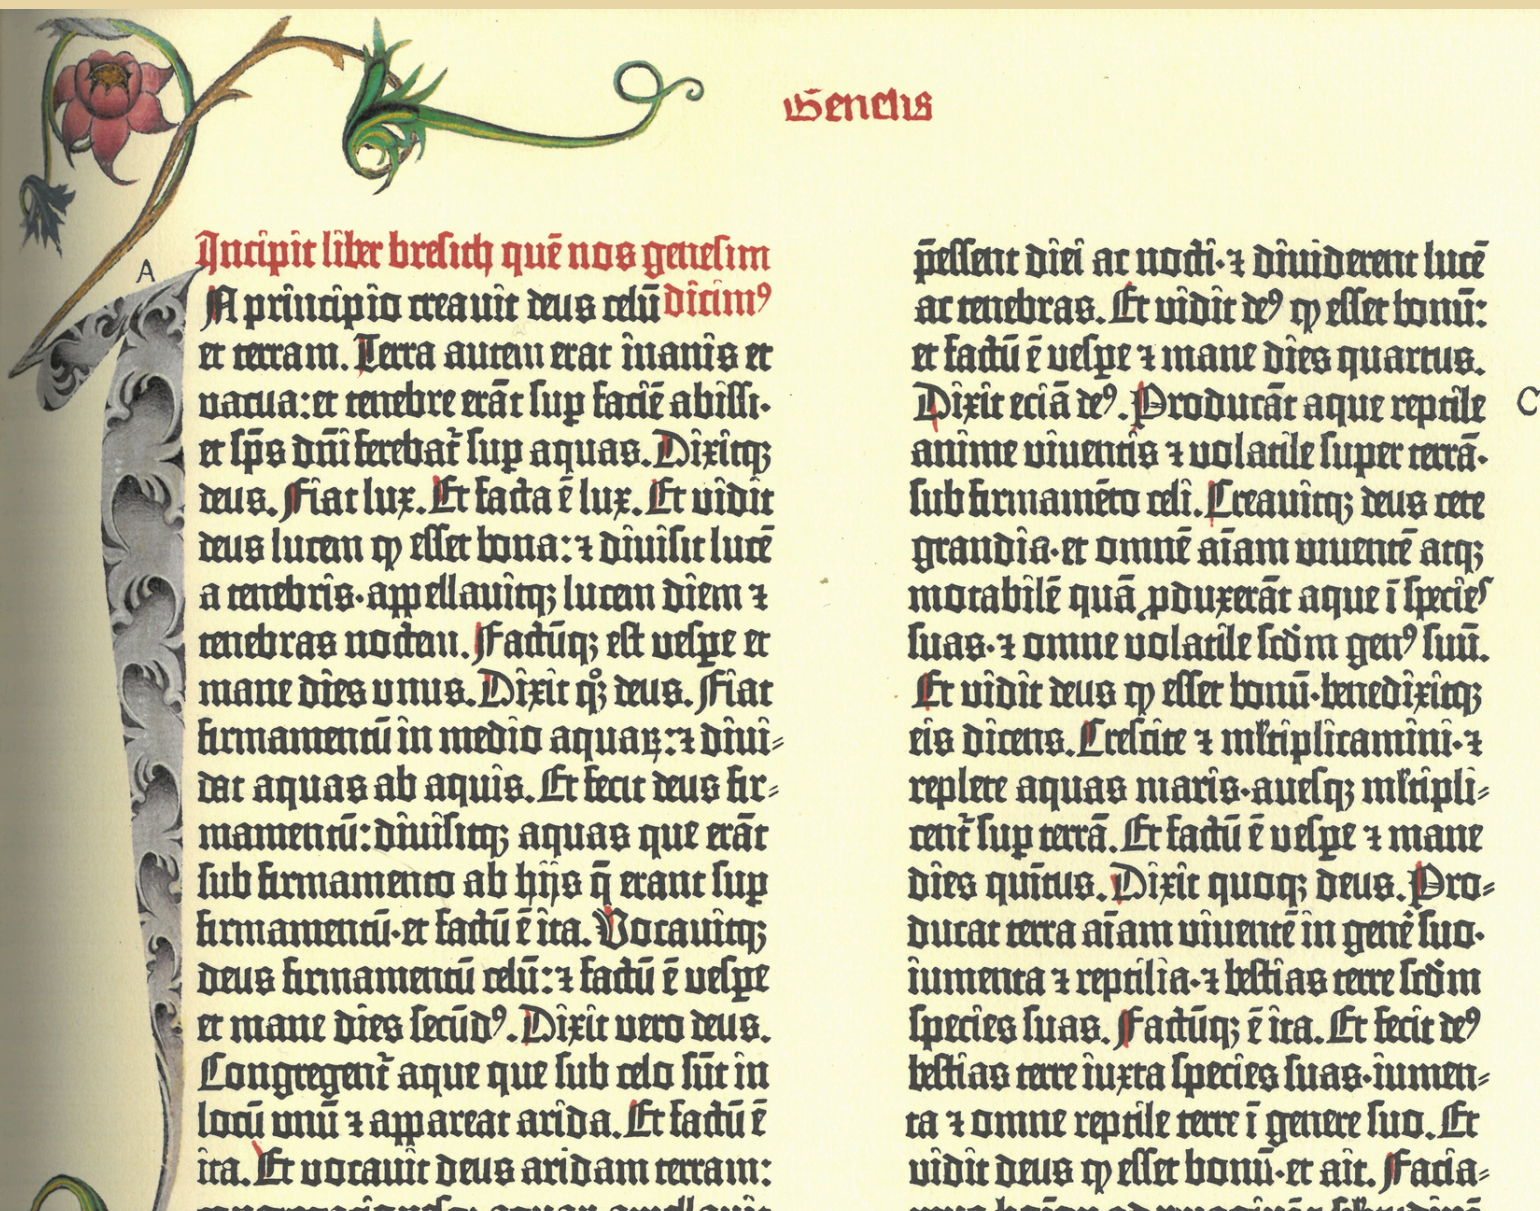 Genesis
Incipit liber bresith quē nos genesim
A
IN principio creauit deus celū dicimꝰ
et terram. Terra autem erat inanis et
vacua: et tenebre erāt sup faciē abissi·
et sp̄s dn̄i ferebat̄ sup aquas. Dixitqꝫ
deus. Fiat lux. Et facta ē lux. Et vidit
deus lucem ꝙ esset bona: ⁊ diuisit lucē
a tenebris· appellauitqꝫ lucem diem ⁊
tenebras noctem. Factūqꝫ est vesꝑe et
mane dies vnus. Dixit qꝫ deus. Fiat
firmamentū in medio aquaꝝ: ⁊ diui⸗
dat aquas ab aquis. Et fecit deus fir⸗
mamentū: diuisitqꝫ aquas que erāt
sub firmamento ab hijs q̄ erant suꝑ
firmamentū· et factū ē ita. Vocauitqꝫ
deus firmamentū celū: ⁊ factū ē vesꝑe
et mane dies secūdꝰ. Dixit vero deus.
Congregent̄ aque que sub celo sūt in
locū vnū ⁊ appareat arida. Et factū ē
ita. Et vocauit deus aridam terram:
p̄essent diei ac nocti· ⁊ diuiderent lucē
ac tenebras. Et vidit deꝰ ꝙ esset bonū:
et factū ē vesꝑe ⁊ mane dies quartus.
Dixit eciā deꝰ. Producāt aque reptile
C
anime viuentis ⁊ volatile super terrā·
sub firmamēto celi. Creauitqꝫ deus cete
grandia· et omnē aīam viuentē atqꝫ
motabilē quā ꝓduxerāt aque ī species
suas· ⁊ omne volatile scd̄m genꝰ suū.
Et vidit deus ꝙ esset bonū· benedixitqꝫ
eis dicens. Crescite ⁊ ml̄tiplicamini· ⁊
replete aquas maris· auesqꝫ ml̄tipli⸗
cent̄ suꝑ terrā. Et factū ē vesꝑe ⁊ mane
dies quītus. Dixit quoqꝫ deus. Pro⸗
ducat terra aīam viuentē in gene᷑ suo·
iumenta ⁊ reptilia· ⁊ bestias terre scd̄m
species suas. Factūqꝫ ē ita. Et fecit deꝰ
bestias terre iuxta species suas· iumen⸗
ta ⁊ omne reptile terre ī genere suo. Et
vidit deus ꝙ esset bonū· et ait. Facia⸗